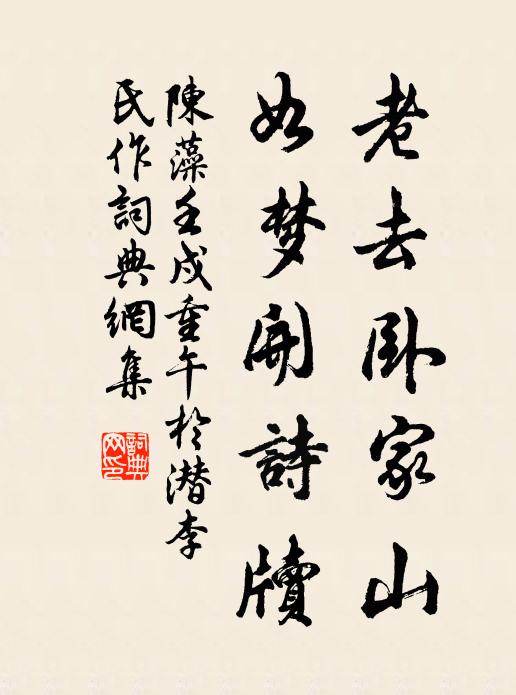 老去卧家山
如梦開詩牘
陳藻壬戌重午於潜李
氏作詞典網集
詞典網印